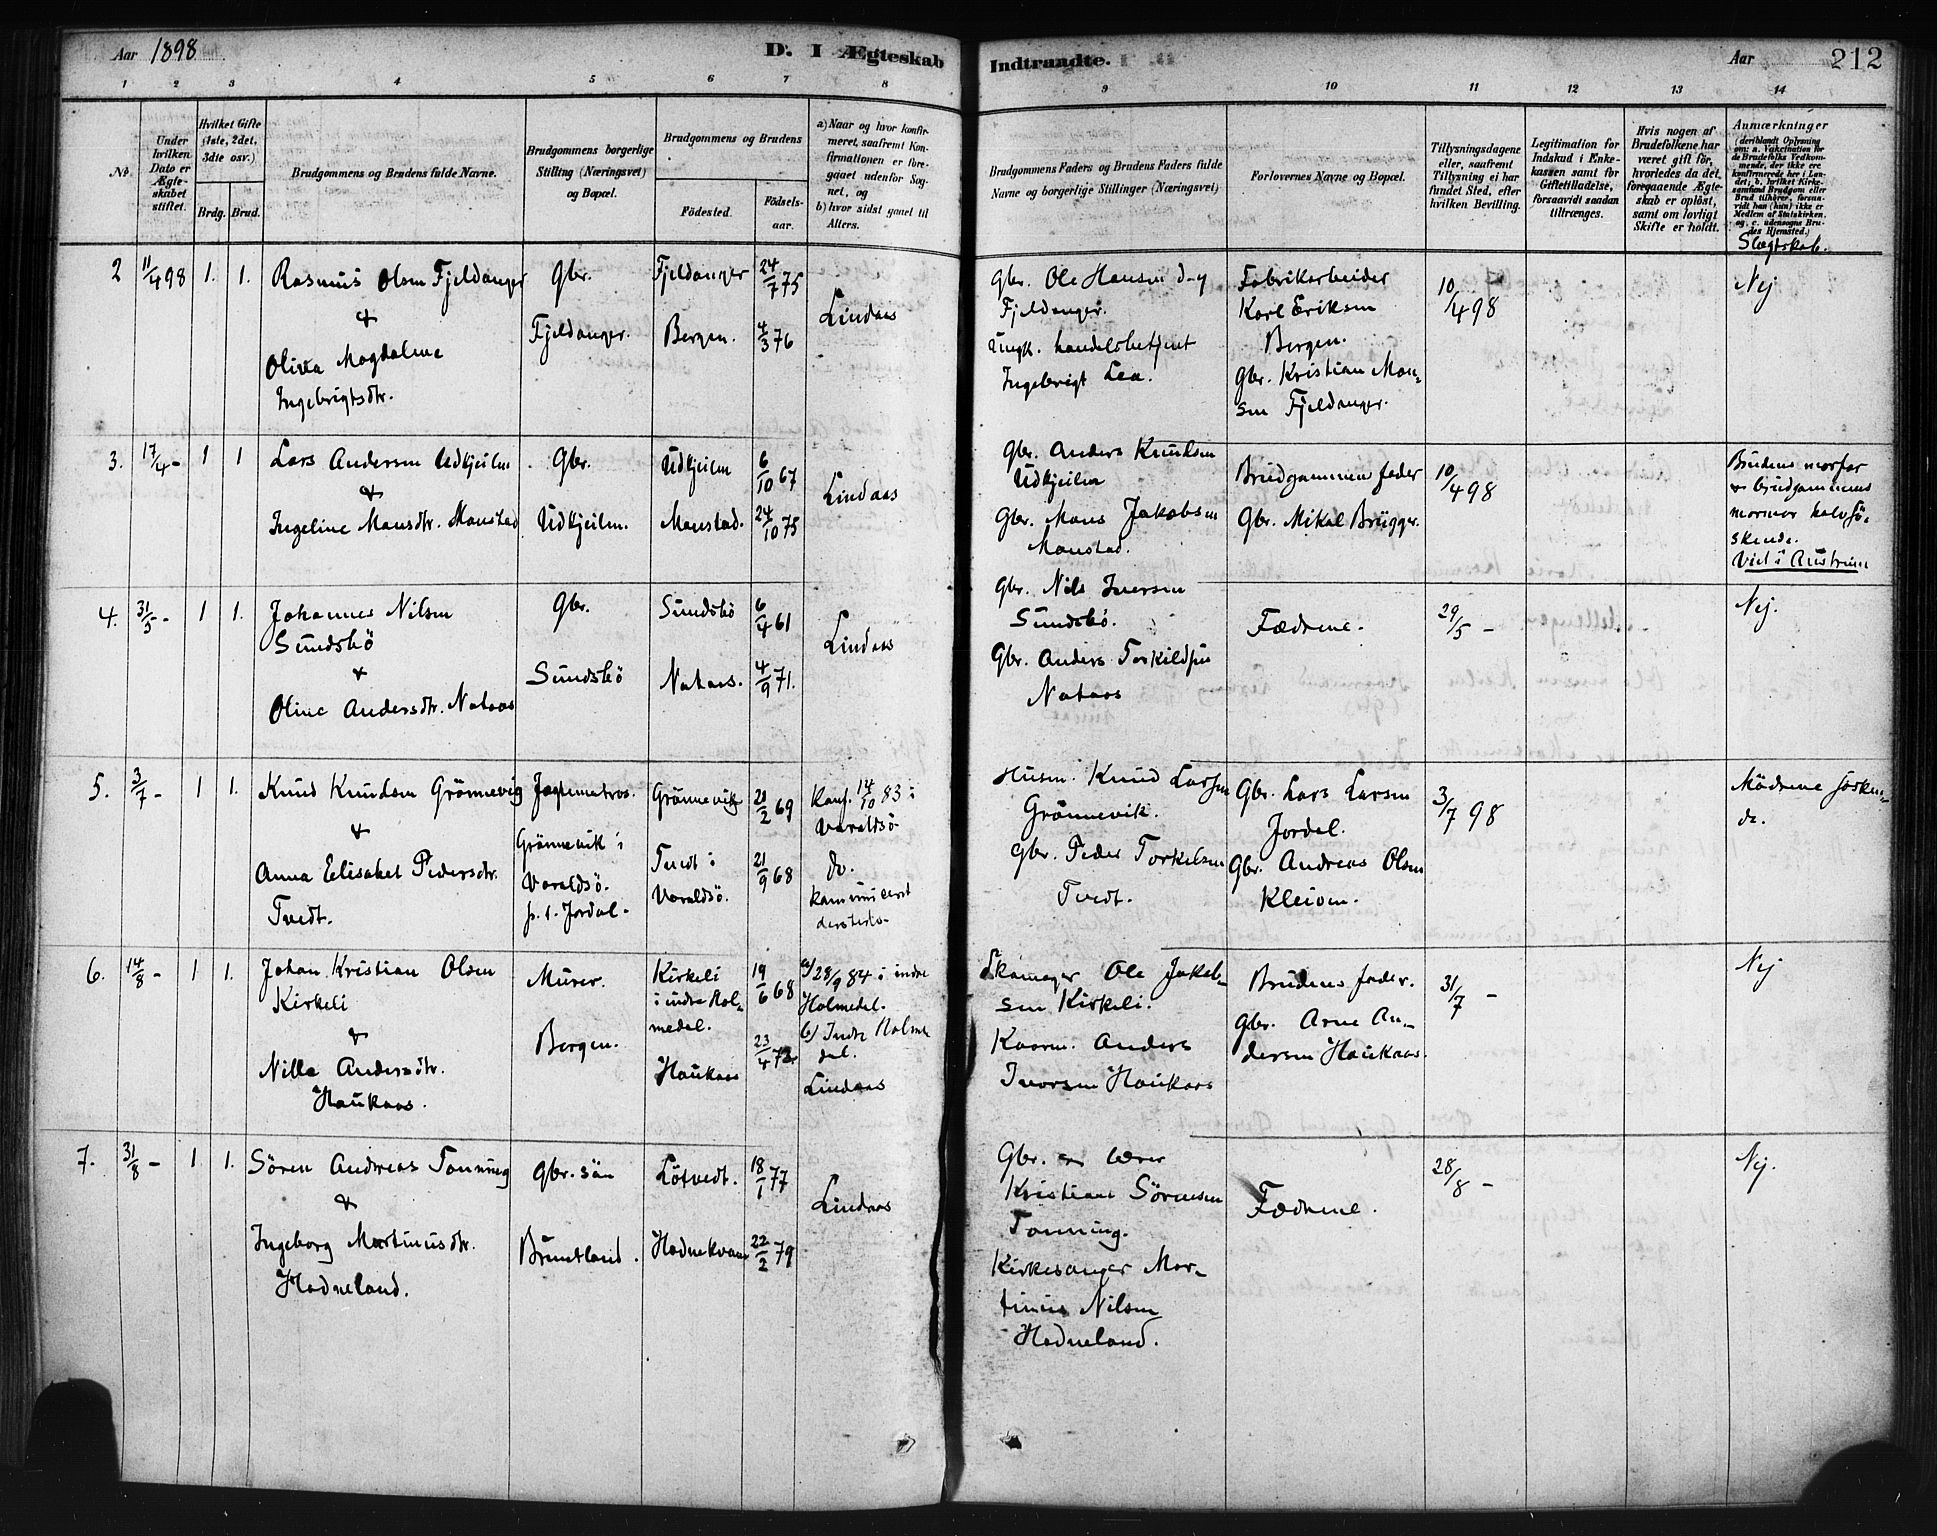 Aar 1898
D. I Ægteskab
Indtraadte.
Aar
212
1 2 3 4 5 6 7 8 9 10 11 12 13 14
No.
Under hvilken Dato er Ægteskabet stiftet.
Hvilket Gifte (1ste, 2det, 3die osv.)
Brdg. Brud.
Brudgommens og Brudens fulde Navne.
Brudgommens borgerlige Stilling (Næringsvei) og Bopæl.
Brudgommens og Brudens
Födested.
Födsels-aar.
a) Naar og hvor konfirmeret, saafremt Konfirmationen er foregaaet udenfor Sognet, og
b) hvor sidst gaaet til Alters.
Brudgommens Faders og Brudens Faders fulde Navne og borgerlige Stillinger (Næringsvei)
Forlovernes Navne og Bopæl.
Tillysningsdagene eller, saafremt Tillysning ei har fundet Sted, efter hvilken Bevilling.
Legitimation for Indskud i Enkekassen samt for Giftetilladelse, forsaavidt saadan tiltrænges.
Hvis nogen af Brudefolkene har været gift för, hvorledes da det foregaaende Ægteskab er oplöst, samt om lovligt Skifte er holdt.
Anmærkninger
(deriblandt Oplysning om: a. Vakcination for de Brudefolks Vedkommende, der ikke ere konfirmerede her i Landet; b. hvilket Kirkesamfund Brudgom eller Brud tilhører, forsaavidt han (hun) ikke er Medlem af Statskirken, og c. udensogns Brudes Hjemsted.)
Slægtskab.
2 11/4 98 1. 1.
Rasmus Olsen Fjeldanger
&
Olivia Magdalene
Ingebrigtsdtr.
Gbr.
Fjeldanger.
Fjeldanger 24/7 75
Bergen. 4/3 76
Lindaas
Gbr. Ole Hansen
Fjeldanger.
Ungk. handelsbetjent
Ingebrigt Lea.
Fabrikarbeider
Karl Eriksen
Bergen.
Gbr. Kristian Mon-
sen Fjeldanger.
10/4 98
Nej
3. 17/4 - 1 1
Lars Andersen Udkjeilen
&
Ingeline Monsdtr. Monstad
Gbr.
Udkjeilen.
Udkjeilen 6/10 67
Monstad. 24/10 75
Lindaas
Gbr. Anders Knudsen
Udkjeilen
Gbr. Mons Jakobsen
Monstad.
Brudgommens fader
Gbr. Mikal Brügger.
10/4 98
Brudens morfar
& brudgommens
mormor halvsö-
skende.
Viet i Austrheim
4. 31/5 - 1 1.
Johannes Nilsen
Sundsbö
&
Oline Andersdtr. Nataas
Gbr.
Sundsbö
Sundsbö 6/4 61
Nataas. 4/9 71.
Lindaas
Gbr. Nils Iversen
Sundsbö.
Gbr. Anders Torkildsen
Nataas
Fædrene.
29/5 -
Nej.
5. 3/7 - 1 1.
Knud Knudsen Grönnevig
&
Anna Elisabet Pedersdtr.
Tvedt.
Jagtematros.
Grönnevik i
Varaldsö.
p. t. Jordal.
Grönnevik 21/2 69
Tvedt i
Varaldsö. 21/9 68
Konf. 14/10 83 i
Varaldsö
do.
kommuniceret
dersteds.
Husm. Knud Larsen
Grönnevik.
Gbr. Peder Torkelsen
Tvedt.
Gbr. Lars Larsen
Jordal.
Gbr. Andreas Olsen
Kleiven.
3/7 98
Mödrene sösken-
de.
6. 14/8 - 1 1.
Johan Kristian Olsen
Kirkeli
&
Nilla Andersdtr.
Haukaas.
Murer.
Bergen.
Kirkeli
i indre Hol-
medal. 19/6 68
Haukaas 23/4 72
a) 28/9 84 i indre
Holmedal.
b) Indre Holme
dal.
Lindaas
Skomager Ole Jakob-
sen Kirkeli.
Kaarm. Anders
Ivarsen Haukaas
Brudens fader.
Gbr. Arne An-
dersen Haukaas.
31/7 -
Nej
7. 31/8 - 1. 1.
Sören Andreas Tonning
&
Ingeborg Martinusdtr.
Hodneland.
Gbr. sön
Bruntland.
Lötvedt. 18/1 77
Hodnekvam 22/2 79
Lindaas
Gbr. og lærer
Kristian Sörensen
Tonning.
Kirkesanger Mar-
tinus Nilsen
Hodneland.
Fædrene.
28/8 -
Nej.